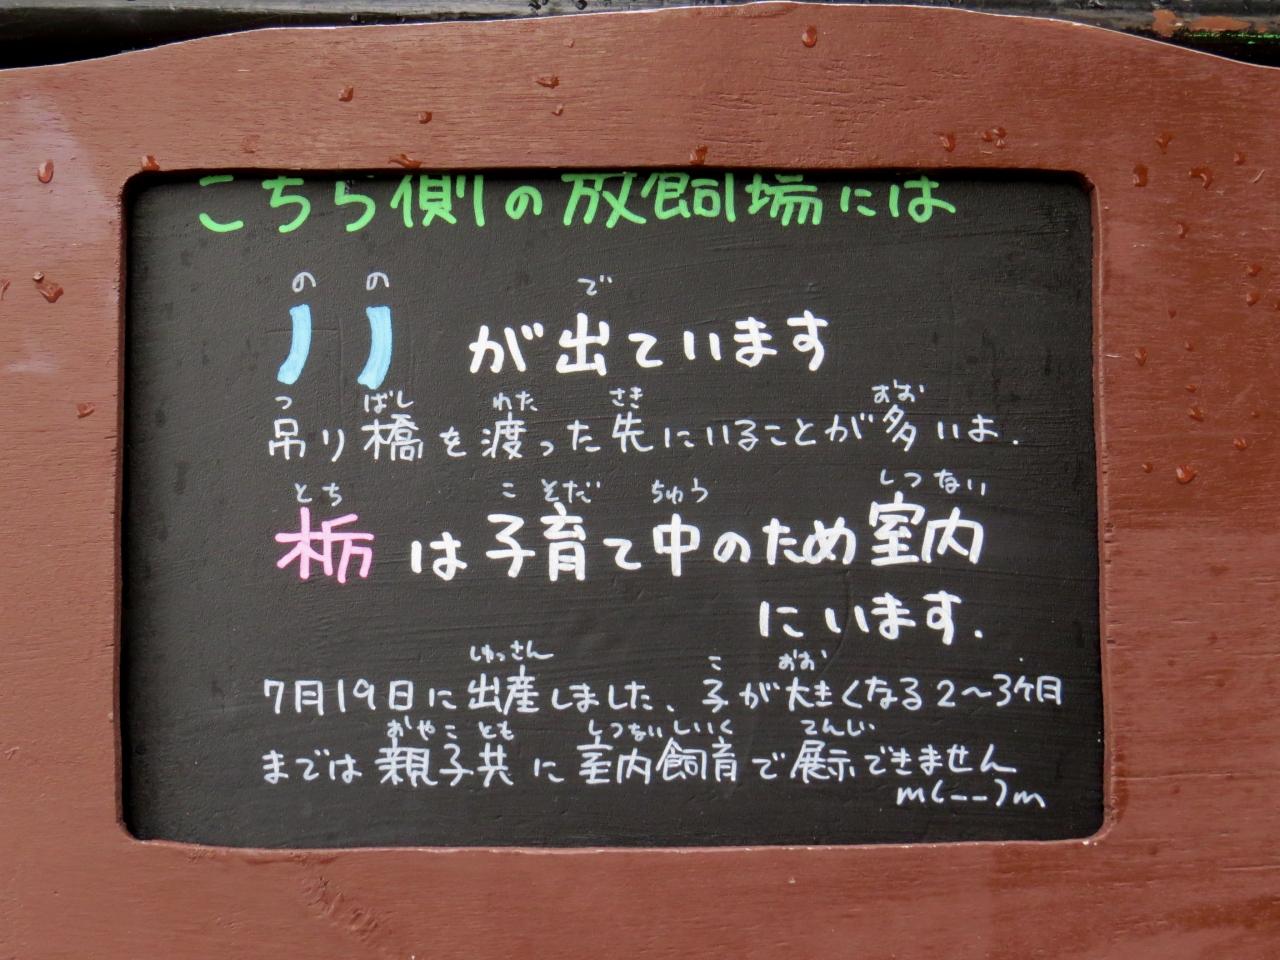 こちら側の放飼場には
のの で
ノノ が出ています
つ ばし わた さき おお
吊り橋を渡った先にいることが多いよ.
とち こ そだ ちゅう しつ ない
栃は子育て中のため室内
にいます.
しゅっさん こ おお
7月19日に出産しました、子が大きくなる2〜3ヶ月
おやことも しつない しいく てんじ
までは親子共に室内飼育で展示できません
m(__)m